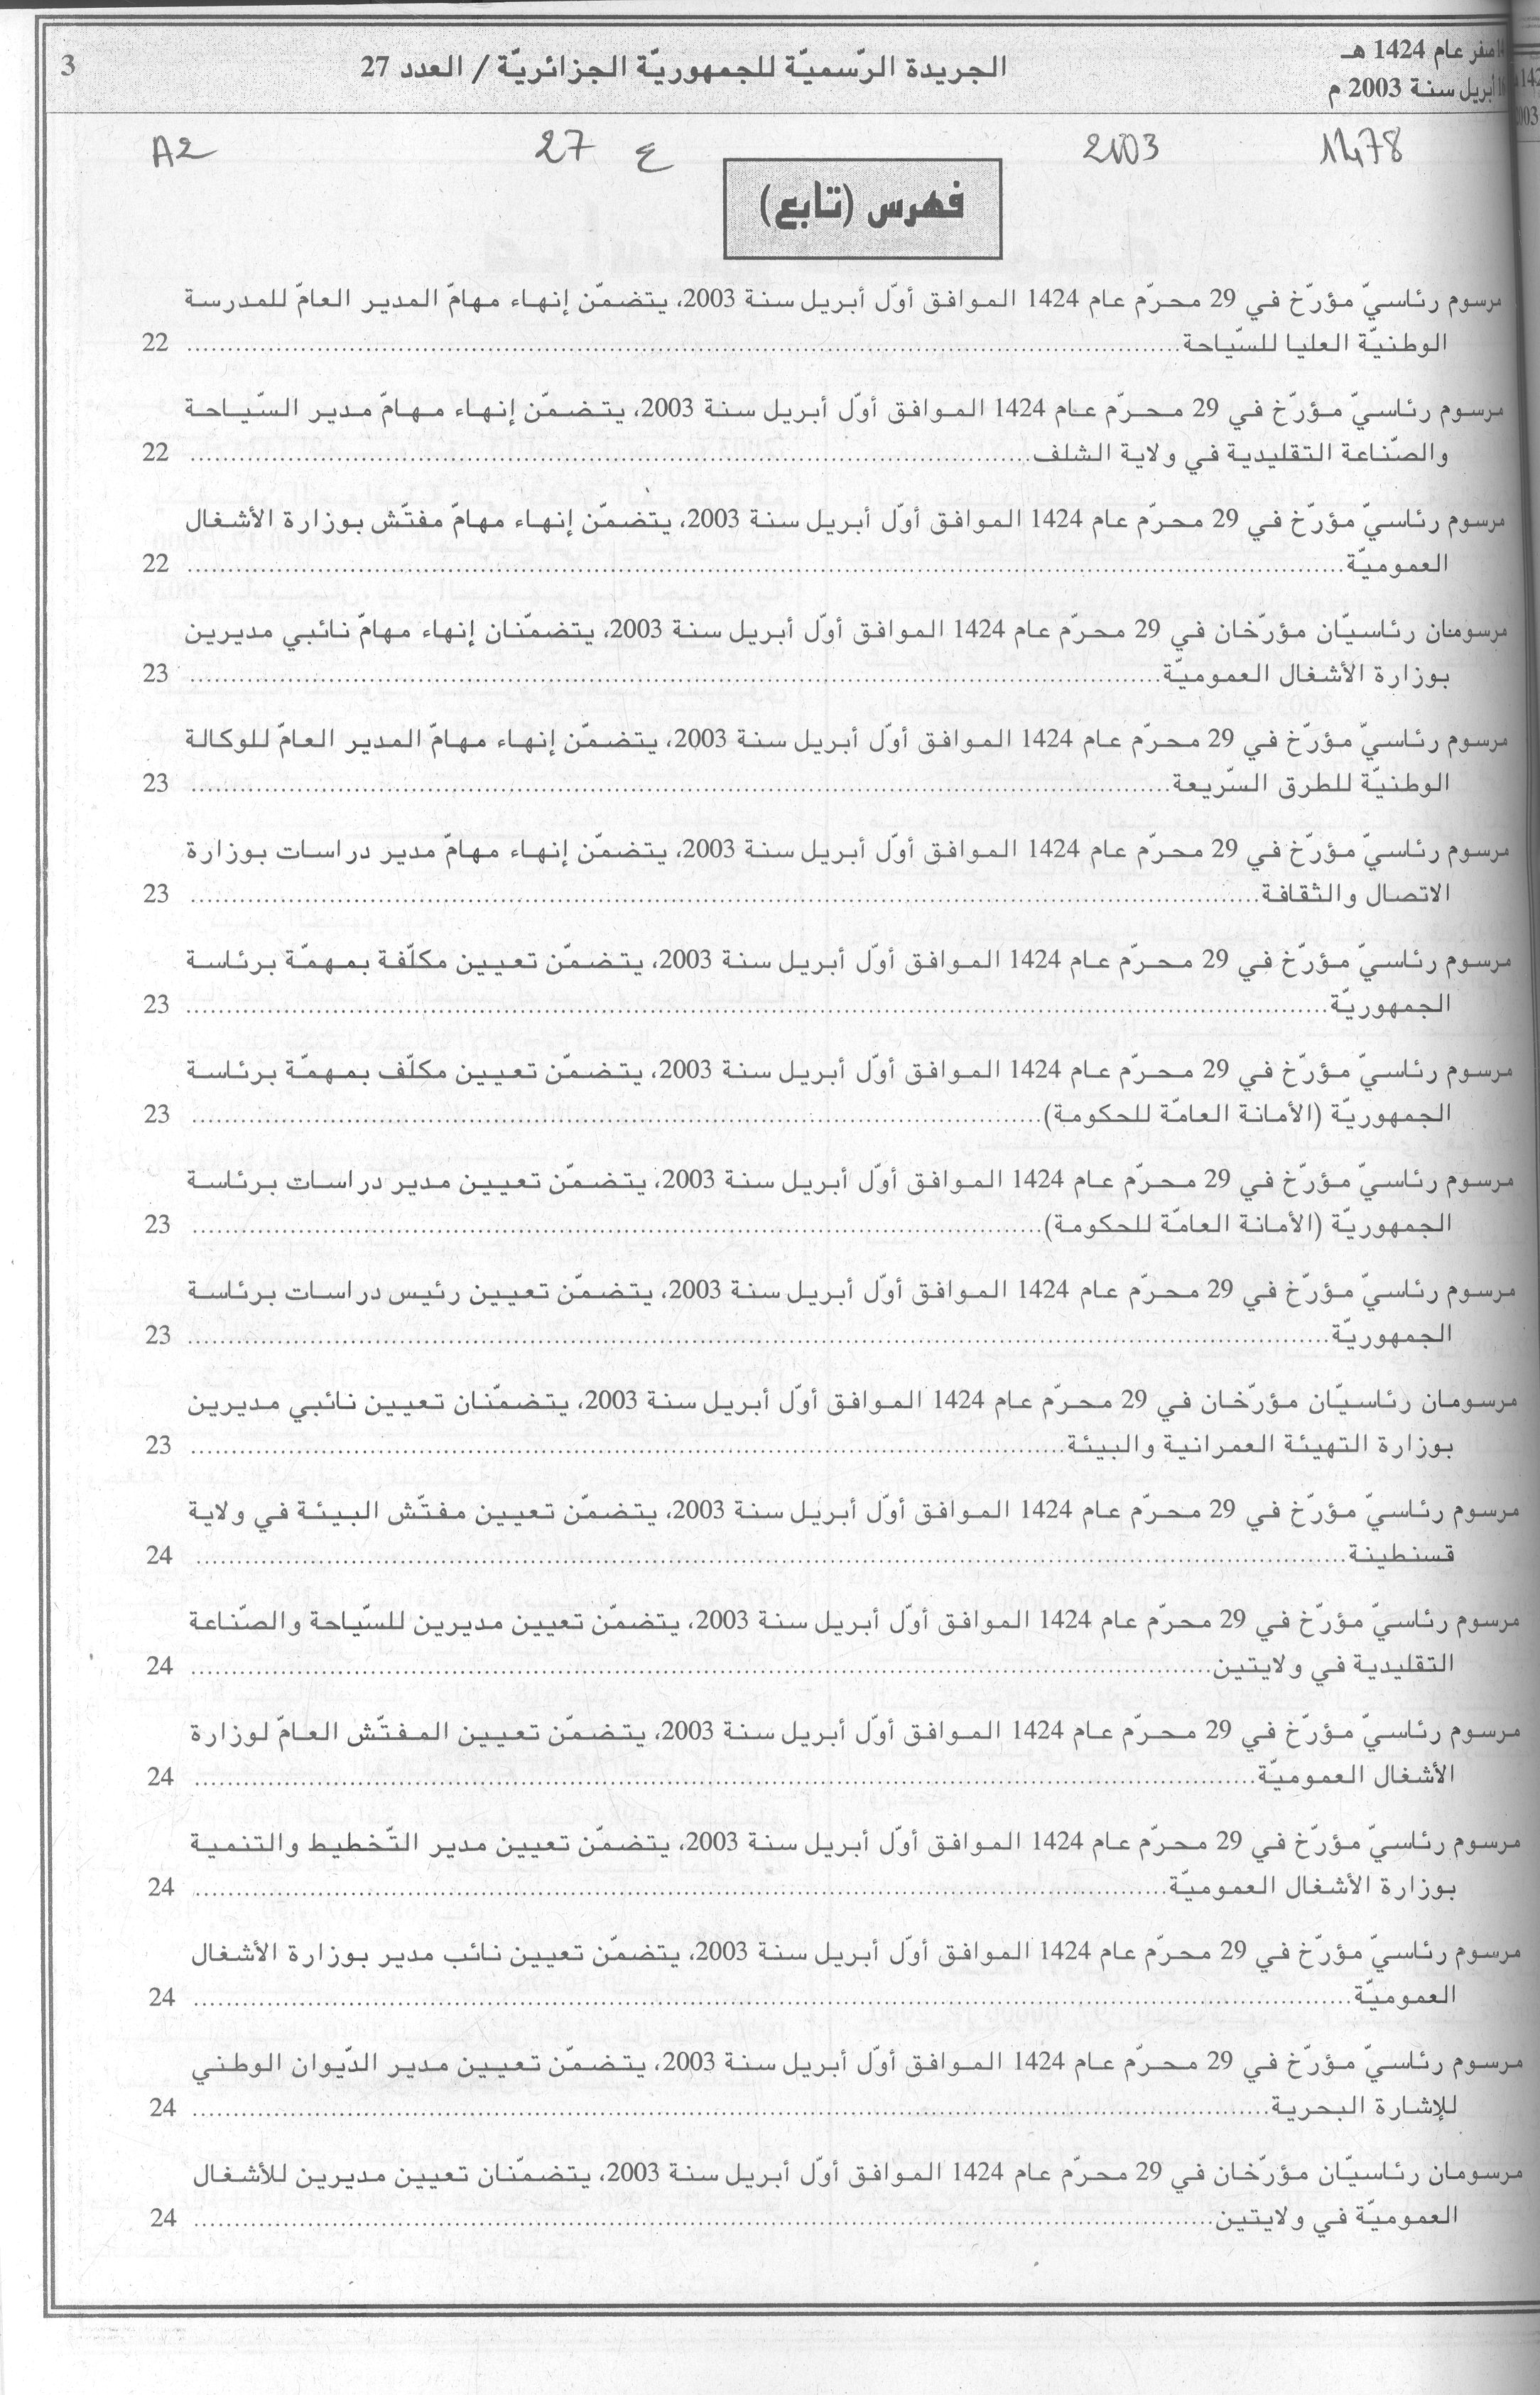 14 صفر عام 1424 هـ
16 أبريل سنة 2003 م
الجريدة الرّسميّة للجمهوريّة الجزائريّة / العدد 27
3
A2
27 ع
2003
فهرس (تابع)
مرسوم رئاسيّ مؤرّخ في 29 محرّم عام 1424 الموافق أوّل أبريل سنة 2003، يتضمّن إنهاء مهامّ المدير العامّ للمدرسة
الوطنيّة العليا للسّياحة 22
مرسوم رئاسيّ مؤرّخ في 29 محرّم عام 1424 الموافق أوّل أبريل سنة 2003، يتضمّن إنهاء مهامّ مدير السّياحة
والصّناعة التقليدية في ولاية الشلف 22
مرسوم رئاسيّ مؤرّخ في 29 محرّم عام 1424 الموافق أوّل أبريل سنة 2003، يتضمّن إنهاء مهامّ مفتّش بوزارة الأشغال
العموميّة 22
مرسومان رئاسيّان مؤرّخان في 29 محرّم عام 1424 الموافق أوّل أبريل سنة 2003، يتضمّنان إنهاء مهامّ نائبي مديرين
بوزارة الأشغال العموميّة 23
مرسوم رئاسيّ مؤرّخ في 29 محرّم عام 1424 الموافق أوّل أبريل سنة 2003، يتضمّن إنهاء مهامّ المدير العامّ للوكالة
الوطنيّة للطرق السّريعة 23
مرسوم رئاسيّ مؤرّخ في 29 محرّم عام 1424 الموافق أوّل أبريل سنة 2003، يتضمّن إنهاء مهامّ مدير دراسات بوزارة
الاتصال والثقافة 23
مرسوم رئاسيّ مؤرّخ في 29 محرّم عام 1424 الموافق أوّل أبريل سنة 2003، يتضمّن تعيين مكلّفة بمهمّة برئاسة
الجمهوريّة 23
مرسوم رئاسيّ مؤرّخ في 29 محرّم عام 1424 الموافق أوّل أبريل سنة 2003، يتضمّن تعيين مكلّف بمهمّة برئاسة
الجمهوريّة (الأمانة العامّة للحكومة) 23
مرسوم رئاسيّ مؤرّخ في 29 محرّم عام 1424 الموافق أوّل أبريل سنة 2003، يتضمّن تعيين مدير دراسات برئاسة
الجمهوريّة (الأمانة العامّة للحكومة) 23
مرسوم رئاسيّ مؤرّخ في 29 محرّم عام 1424 الموافق أوّل أبريل سنة 2003، يتضمّن تعيين رئيس دراسات برئاسة
الجمهوريّة 23
مرسومان رئاسيّان مؤرّخان في 29 محرّم عام 1424 الموافق أوّل أبريل سنة 2003، يتضمّنان تعيين نائبي مديرين
بوزارة التهيئة العمرانية والبيئة 23
مرسوم رئاسيّ مؤرّخ في 29 محرّم عام 1424 الموافق أوّل أبريل سنة 2003، يتضمّن تعيين مفتّش البيئة في ولاية
قسنطينة 24
مرسوم رئاسيّ مؤرّخ في 29 محرّم عام 1424 الموافق أوّل أبريل سنة 2003، يتضمّن تعيين مديرين للسّياحة والصّناعة
التقليدية في ولايتين 24
مرسوم رئاسيّ مؤرّخ في 29 محرّم عام 1424 الموافق أوّل أبريل سنة 2003، يتضمّن تعيين المفتّش العامّ لوزارة
الأشغال العموميّة 24
مرسوم رئاسيّ مؤرّخ في 29 محرّم عام 1424 الموافق أوّل أبريل سنة 2003، يتضمّن تعيين مدير التّخطيط والتنمية
بوزارة الأشغال العموميّة 24
مرسوم رئاسيّ مؤرّخ في 29 محرّم عام 1424 الموافق أوّل أبريل سنة 2003، يتضمّن تعيين نائب مدير بوزارة الأشغال
العموميّة 24
مرسوم رئاسيّ مؤرّخ في 29 محرّم عام 1424 الموافق أوّل أبريل سنة 2003، يتضمّن تعيين مدير الدّيوان الوطني
للإشارة البحرية 24
مرسومان رئاسيّان مؤرّخان في 29 محرّم عام 1424 الموافق أوّل أبريل سنة 2003، يتضمّنان تعيين مديرين للأشغال
العموميّة في ولايتين 24